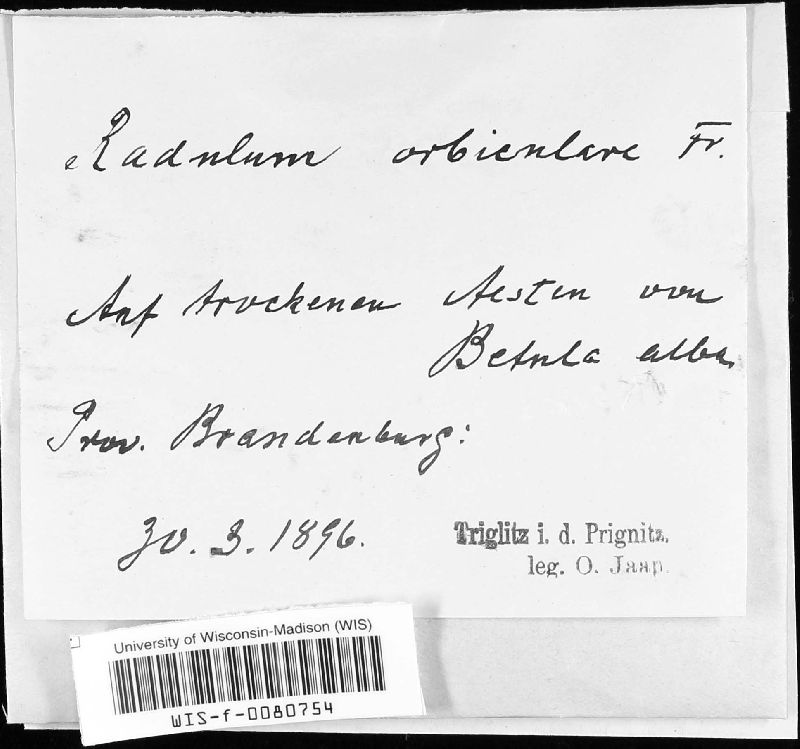 Radulum orbiculare Fr.
Auf trockenen Aesten von
Betula alba.
Prov. Brandenburg:
30. 3. 1896.
Triglitz i. d. Prignitz.
leg. O. Jaap.
University of Wisconsin-Madison (WIS)
WIS-f-0080754